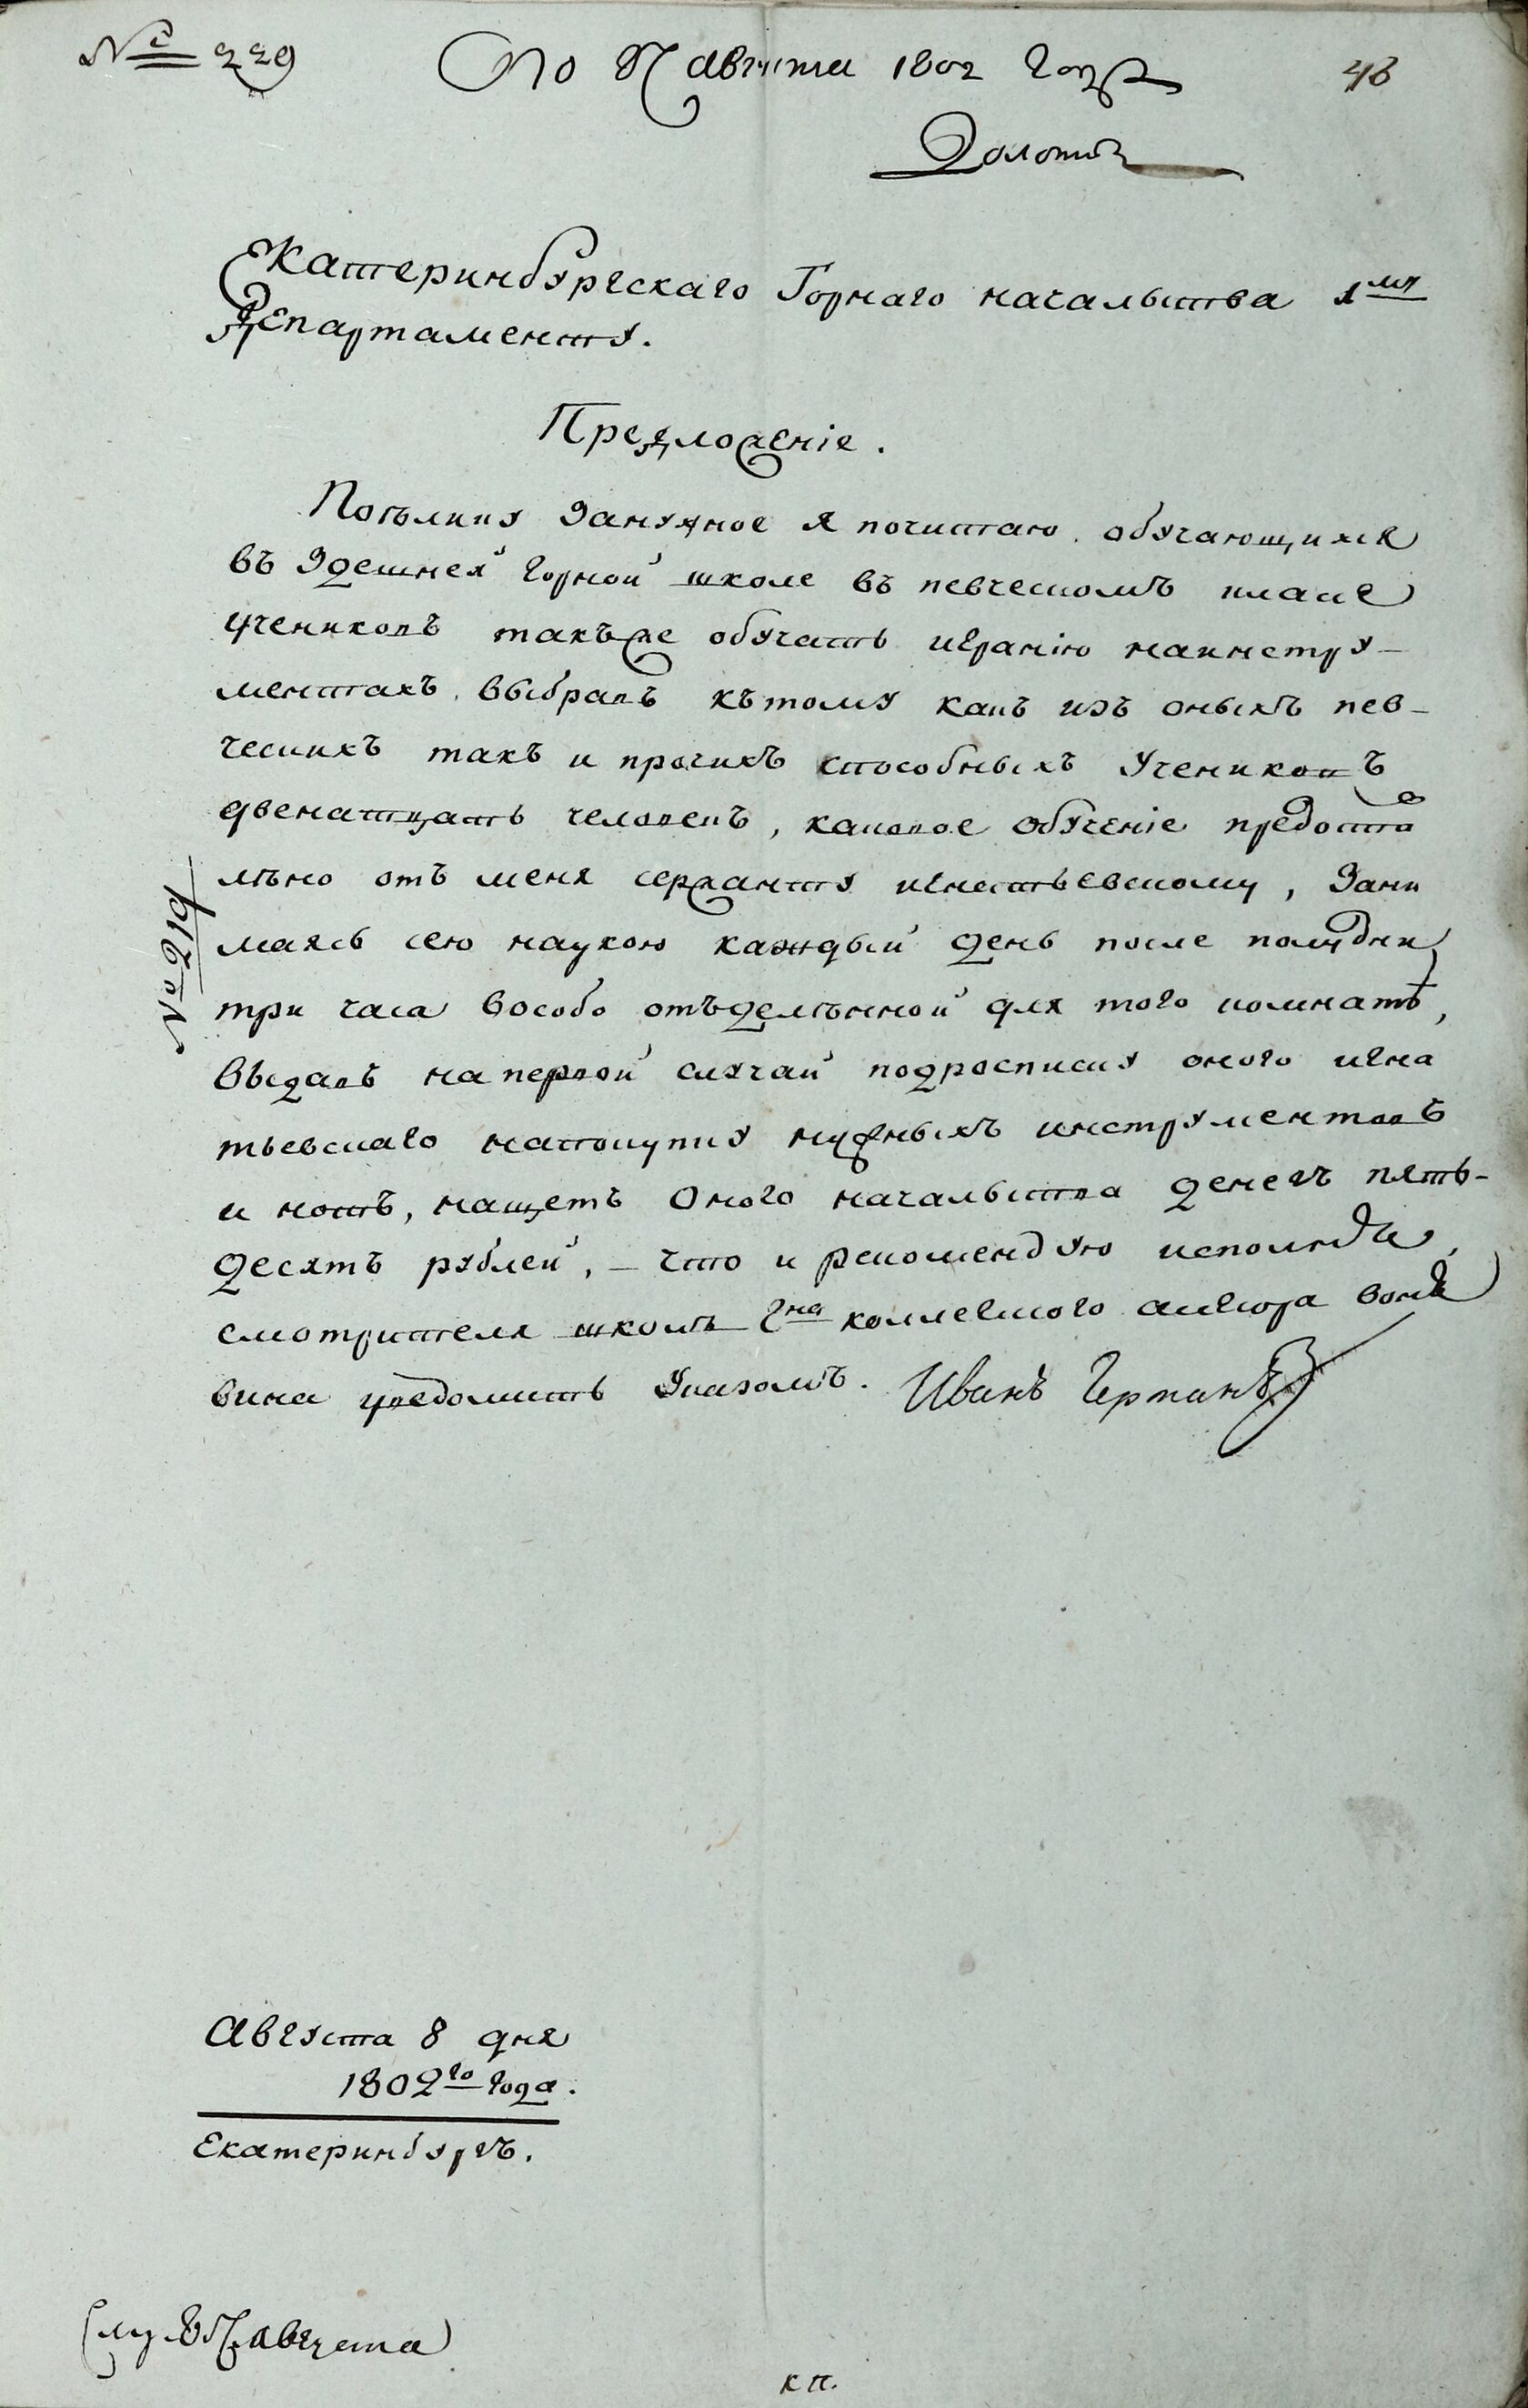 № 229
По 8 августа 1802 года
48
Золотъ
Екатеринбургскаго Горнаго начальства 1му
Департаменту.
Предложеніе.
Поелику Занужное я почитаю, обучающихся
въ Здешней горной школе въ певческомъ класе
учениковъ такъже обучать игранію наинстру-
ментахъ, выбравъ ктому какъ изъ оныхъ пев-
ческихъ такъ и прочихъ способныхъ Учениковъ
двенатцать человекъ, каковое обученіе предостав
лѣно отъ меня сержанту игнатьевскому, Зани
маясь сею наукою каждый день после полудни
три часа вособо отъделѣнной для того комнатѣ,
выдавъ на первой случай подросписку оного игна
тьевскаго напокупку нужныхъ инструментовъ
и нотъ, нащетъ Оного начальства денегъ пять-
десятъ рублей, – что и рекомендую исполнить,
смотрителя школъ гна коллежского асесора воли
вина уведомить Указомъ. Иванъ Германъ
№ 219
Августа 8 дня
1802го года.
Екатеринбургъ.
августа
к п.